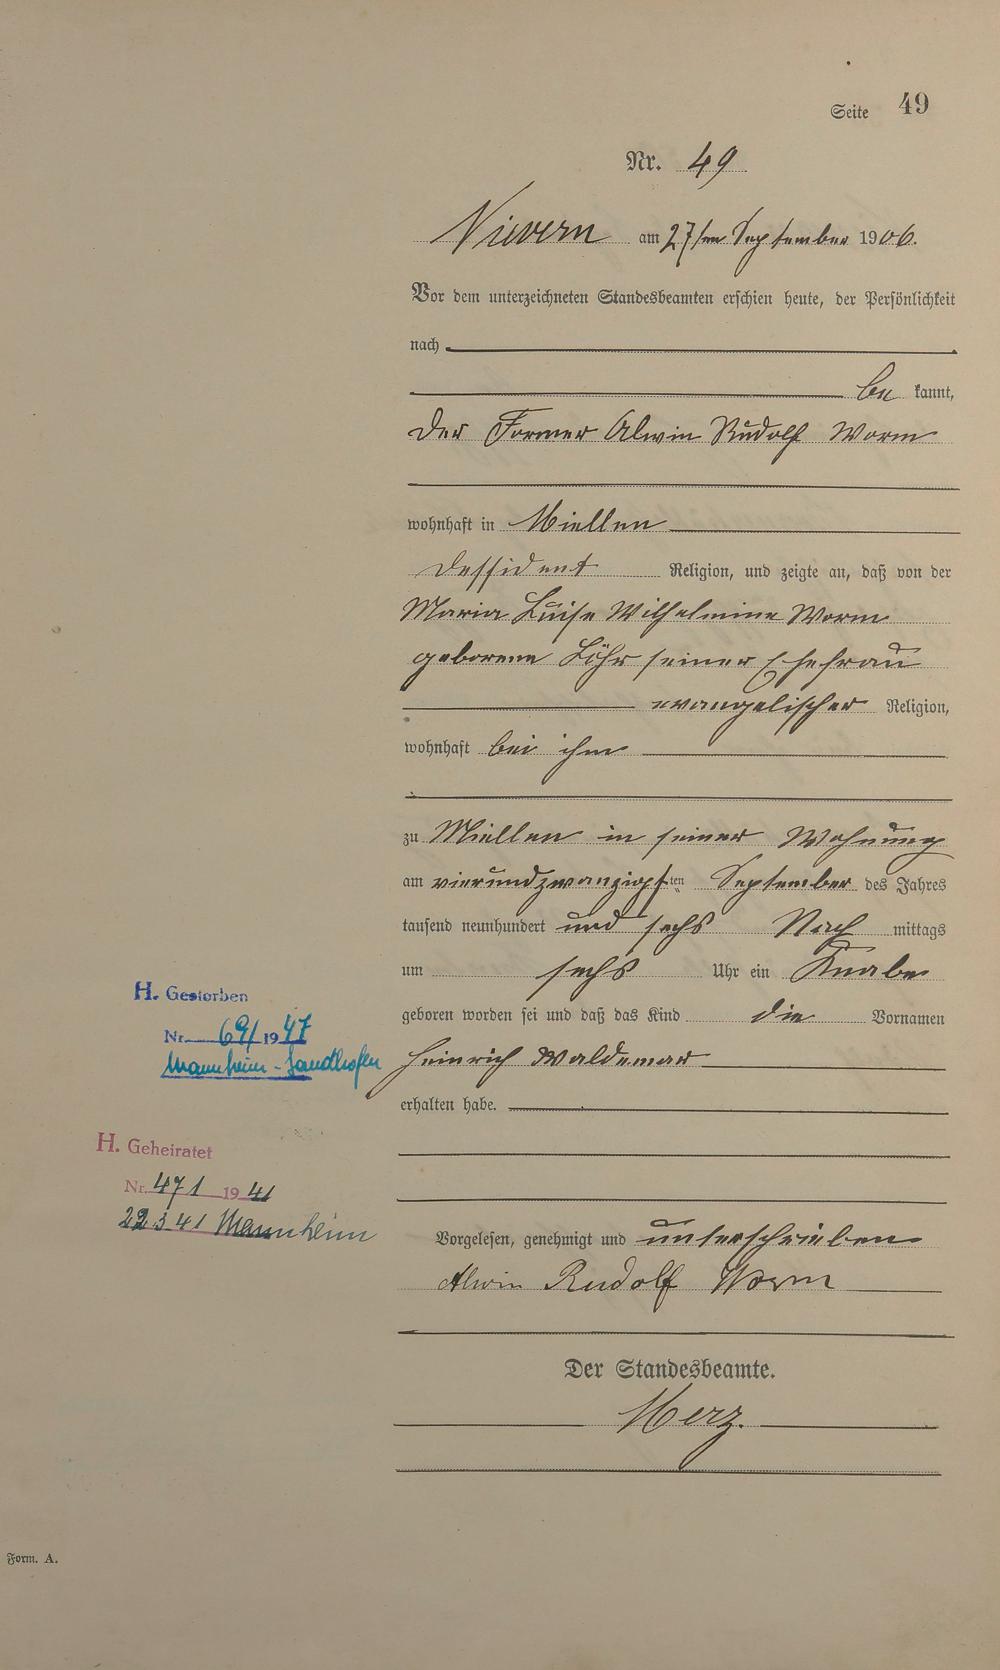 Seite 49
Nr. 49
Nievern am 27ten September 1906.
Vor dem unterzeichneten Standesbeamten erschien heute, der Persönlichkeit
nach
be kannt,
der Former Alwin Rudolf Worm
wohnhaft in Miellen
Dessident Religion, und zeigte an, daß von der
Maria Luise Wilhelmine Worm
geborene Löhr seiner Ehefrau
evangelischer Religion,
wohnhaft bei ihm
zu Miellen in seiner Wohnung
am vierundzwanzigsten September des Jahres
tausend neunhundert und sechs Nach mittags
um sechs Uhr ein Knabe
geboren worden sei und daß das Kind die Vornamen
Heinrich Waldemar
erhalten habe.
Vorgelesen, genehmigt und unterschrieben
Alwin Rudolf Worm
Der Standesbeamte.
Merz.
H. Gestorben
Nr. 69/1947
Mannheim-Sandhofen
H. Geheiratet
Nr. 471 1941
22.3.41 Mannheim
Form. A.